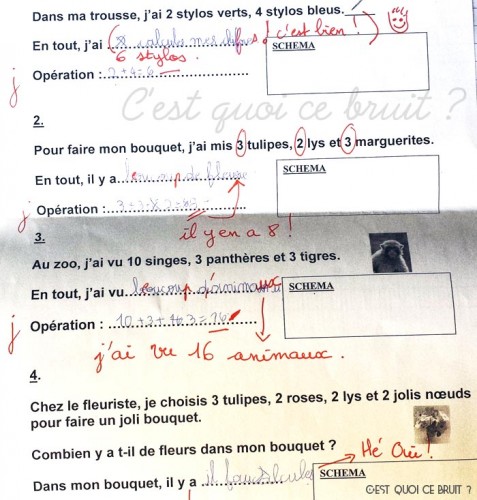 Dans ma trousse, j'ai 2 stylos verts, 4 stylos bleus.
c'est bien !
En tout, j'ai
6 stylos.
SCHEMA
Opération : 2+4=6
j
C'est quoi ce bruit ?
2.
Pour faire mon bouquet, j'ai mis 3 tulipes, 2 lys et 3 marguerites.
En tout, il y a
SCHEMA
Opération :
j
il y en a 8 !
3.
Au zoo, j'ai vu 10 singes, 3 panthères et 3 tigres.
En tout, j'ai vu beaucoup d'animaux
SCHEMA
Opération :
j
j'ai vu 16 animaux.
4.
Chez le fleuriste, je choisis 3 tulipes, 2 roses, 2 lys et 2 jolis nœuds
pour faire un joli bouquet.
Combien y a t-il de fleurs dans mon bouquet ?
Hé Oui !
Dans mon bouquet, il y a il faut
SCHEMA
C'EST QUOI CE BRUIT ?